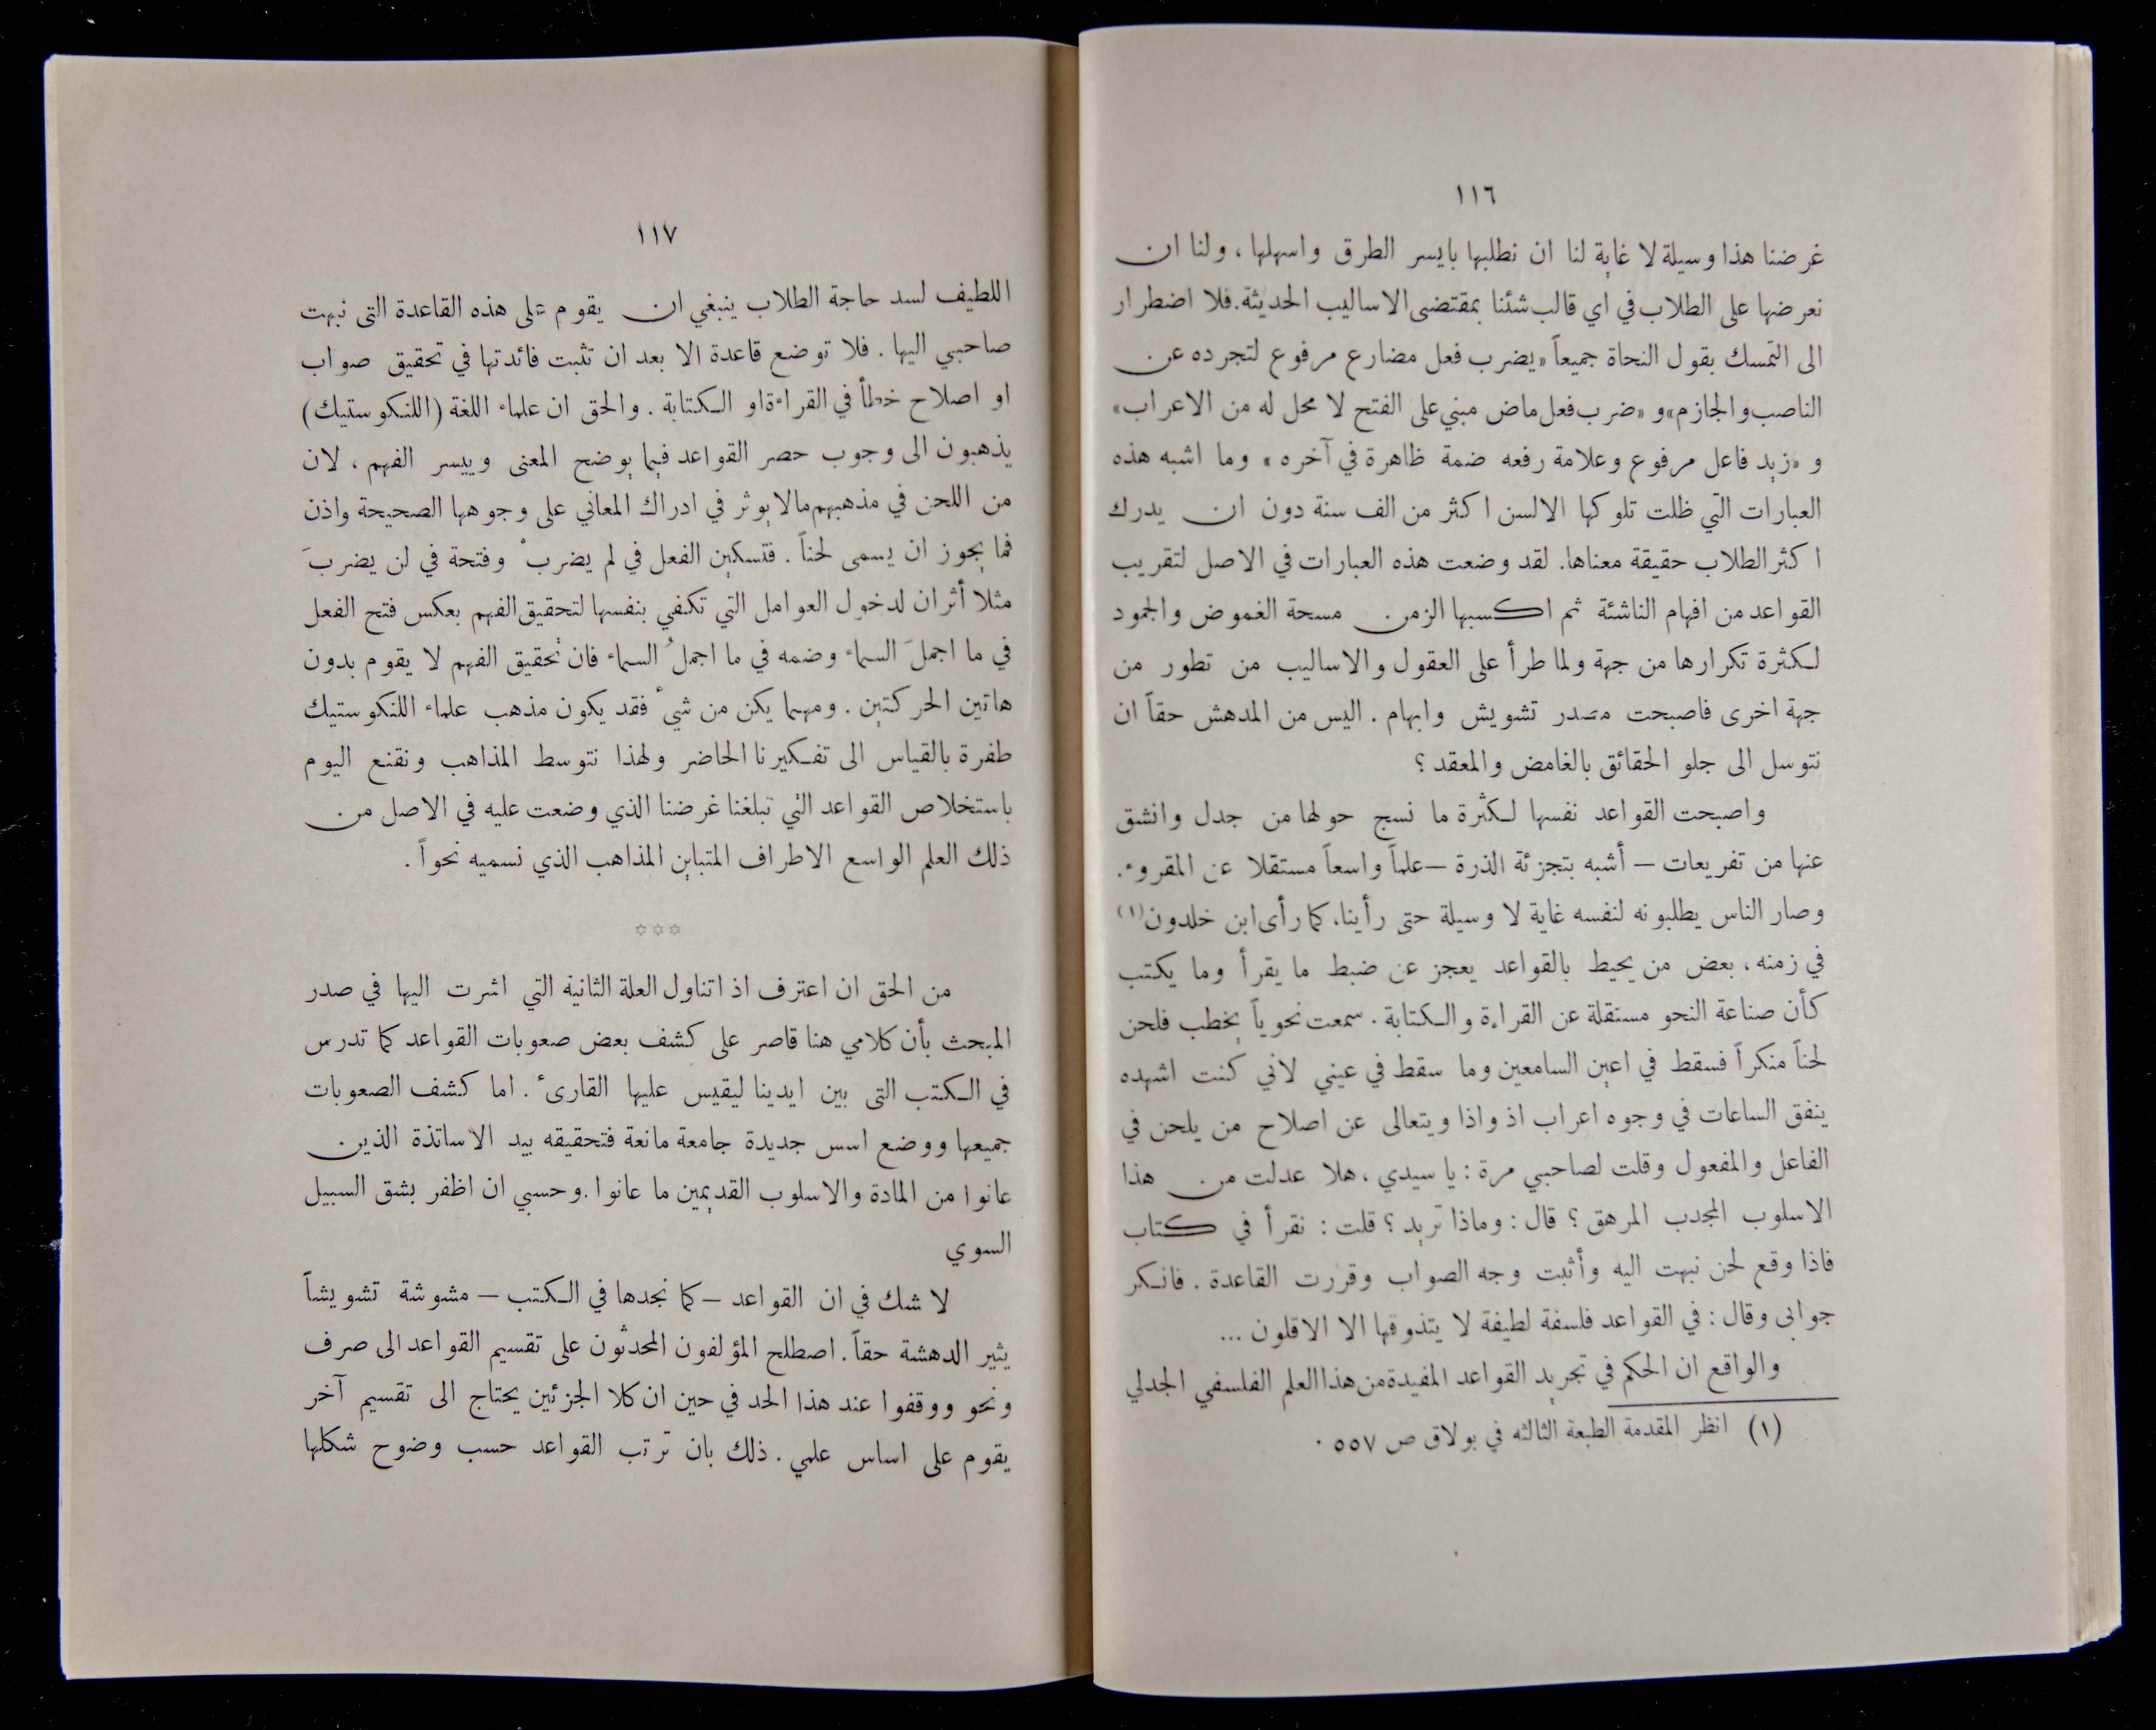 ١١٦
غرضنا هذا وسيلة لا غاية لنا ان نطلبها بايسر الطرق واسهلها ، ولنا ان
نعرضها على الطلاب في اي قالب شئنا بمقتضى الاساليب الحديثة . فلا اضطرار
الى التمسك بقول النحاة جميعاً «يضرب فعل مضارع مرفوع لتجرده عن
الناصب والجازم» و «ضرب فعل ماض مبني على الفتح لا محل له من الاعراب»
و «زيد فاعل مرفوع وعلامة رفعه ضمة ظاهرة في آخره» وما اشبه هذه
العبارات التي ظلت تلوكها الالسن اكثر من الف سنة دون ان يدرك
اكثر الطلاب حقيقة معناها . لقد وضعت هذه العبارات في الاصل لتقريب
القواعد من افهام الناشئة ثم اكسبها الزمن مسحة الغموض والجمود
لكثرة تكرارها من جهة ولما طرأ على العقول والاساليب من تطور من
جهة اخرى فاصبحت مصدر تشويش وابهام . اليس من المدهش حقاً ان
نتوسل الى جلو الحقائق بالغامض والمعقد ؟
واصبحت القواعد نفسها لكثرة ما نسج حولها من جدل وانشق
عنها من تفريعات – أشبه بتجزئة الذرة – علماً واسعاً مستقلا عن المقروء .
وصار الناس يطلبونه لنفسه غاية لا وسيلة حتى رأينا ، كما رأى ابن خلدون (١)
في زمنه ، بعض من يحيط بالقواعد يعجز عن ضبط ما يقرأ وما يكتب
كأن صناعة النحو مستقلة عن القراءة والكتابة . سمعت نحوياً يخطب فلحن
لحناً منكراً فسقط في اعين السامعين وما سقط في عيني لاني كنت اشهده
ينفق الساعات في وجوه اعراب اذ واذا ويتعالى عن اصلاح من يلحن في
الفاعل والمفعول وقلت لصاحبي مرة : يا سيدي ، هلا عدلت من هذا
الاسلوب المجدب المرهق ؟ قال : وماذا تريد ؟ قلت : نقرأ في كتاب
فاذا وقع لحن نبهت اليه وأثبت وجه الصواب وقررت القاعدة . فانكر
جوابي وقال : في القواعد فلسفة لطيفة لا يتذوقها الا الاقلون ...
والواقع ان الحكم في تجريد القواعد المفيدة من هذا العلم الفلسفي الجدلي
(١) انظر المقدمة الطبعة الثالثه في بولاق ص ٥٥٧ .
١١٧
اللطيف لسد حاجة الطلاب ينبغي ان يقوم على هذه القاعدة التى نبهت
صاحبي اليها . فلا توضع قاعدة الا بعد ان تثبت فائدتها في تحقيق صواب
او اصلاح خطأ في القراءة او الكتابة . والحق ان علماء اللغة (اللنكوستيك)
يذهبون الى وجوب حصر القواعد فيما يوضح المعنى وييسر الفهم ، لان
من اللحن في مذهبهم مالا يوثر في ادراك المعاني على وجوهها الصحيحة واذن
فما يجوز ان يسمى لحناً . فتسكين الفعل في لم يضربْ وفتحة في لن يضربَ
مثلا أثران لدخول العوامل التي تكفي بنفسها لتحقيق الفهم بعكس فتح الفعل
في ما اجملَ السماء وضمه في ما اجملُ السماء فان تحقيق الفهم لا يقوم بدون
هاتين الحركتين . ومهما يكن من شيء فقد يكون مذهب علماء اللنكوستيك
طفرة بالقياس الى تفكيرنا الحاضر ولهذا نتوسط المذاهب ونقنع اليوم
باستخلاص القواعد التي تبلغنا غرضنا الذي وضعت عليه في الاصل من
ذلك العلم الواسع الاطراف المتباين المذاهب الذي نسميه نحواً .
✡ ✡ ✡
من الحق ان اعترف اذ اتناول العلة الثانية التي اشرت اليها في صدر
المبحث بأن كلامي هنا قاصر على كشف بعض صعوبات القواعد كما تدرس
في الكتب التى بين ايدينا ليقيس عليها القارىء . اما كشف الصعوبات
جميعها ووضع اسس جديدة جامعة مانعة فتحقيقه بيد الاساتذة الذين
عانوا من المادة والاسلوب القديمين ما عانوا . وحسبي ان اظفر بشق السبيل
السوي
لا شك في ان القواعد – كما نجدها في الكتب – مشوشة تشويشاً
يثير الدهشة حقاً . اصطلح المؤلفون المحدثون على تقسيم القواعد الى صرف
ونحو ووقفوا عند هذا الحد في حين ان كلا الجزئين يحتاج الى تقسيم آخر
يقوم على اساس علمي . ذلك بان ترتب القواعد حسب وضوح شكلها